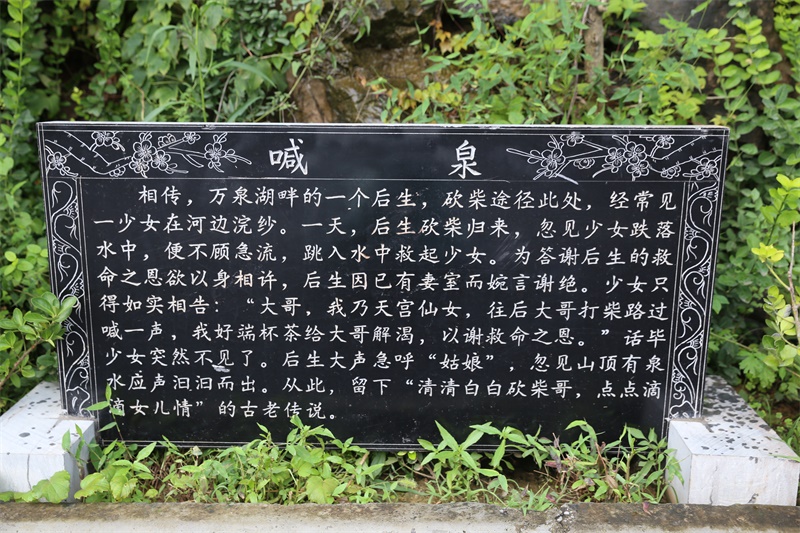 喊 泉
相传，万泉湖畔的一个后生，砍柴途径此处，经常见
一少女在河边浣纱。一天，后生砍柴归来，忽见少女跌落
水中，便不顾急流，跳入水中救起少女。为答谢后生的救
命之恩欲以身相许，后生因已有妻室而婉言谢绝。少女只
得如实相告：“大哥，我乃天宫仙女，往后大哥打柴路过
喊一声，我好端杯茶给大哥解渴，以谢救命之恩。”话毕
少女突然不见了。后生大声急呼“姑娘”，忽见山顶有泉
水应声汩汩而出。从此，留下“清清白白砍柴哥，点点滴
滴女儿情”的古老传说。